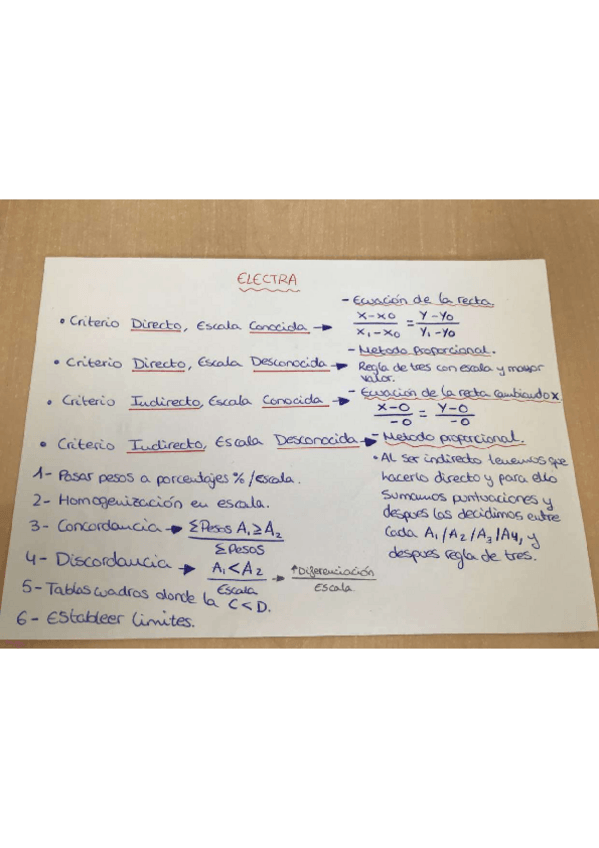 ELECTRA
• Criterio Directo, Escala Conocida →
- Ecuación de la recta.
x-x0 / x1-x0 = y-y0 / y1-y0
• Criterio Directo, Escala Desconocida →
- Metodo proporcional.
Regla de tres con escala y mayor
valor.
• Criterio Indirecto, Escala Conocida →
- Ecuación de la recta cambiando x.
x-0 / -0 = y-0 / -0
• Criterio Indirecto, Escala Desconocida →
- Metodo proporcional.
• Al ser indirecto tenemos que
hacerlo directo y para ello
sumamos puntuaciones y
despues las decidimos entre
cada A1/A2/A3/A4, y
despues regla de tres.
1- Pasar pesos a porcentajes %/escala.
2- Homogenización en escala.
3- Concordancia → ΣPesos A1≥A2 / ΣPesos
4- Discordancia → A1<A2 / Escala → ↑Diferenciación / Escala
5- Tablas cuadros donde la C<D.
6- EStableer limites.